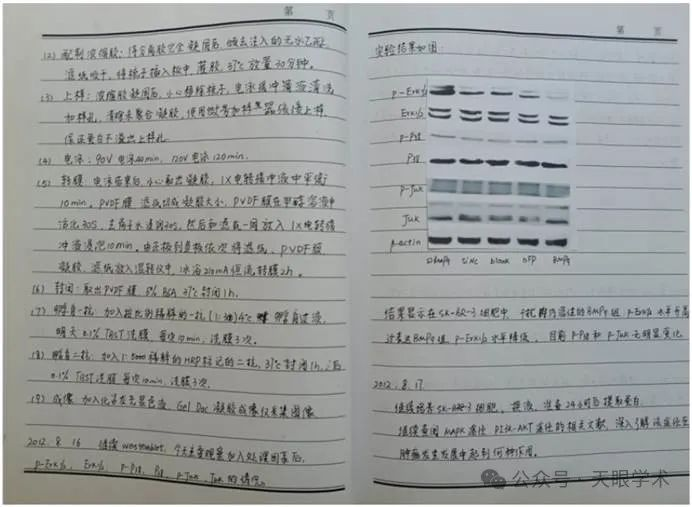 第 页
(2) 配制浓缩胶：待分离胶完全凝固后，倾去注入的无水乙醇
滤纸吸干，将梳子插入板中，灌胶，37℃放置30分钟。
(3) 上样：浓缩胶凝固后，小心移除梳子，电泳缓冲液清洗
加样孔，清除未聚合凝胶，使用微量加样器缓慢上样，
保证蛋白不溢出上样孔
(4) 电泳：90V电泳40min，120V电泳120min.
(5) 转膜：电泳结束后，小心取出凝胶，1X电转缓冲液中平衡
10min。PVDF膜、滤纸切成凝胶大小，PVDF膜在甲醇溶液中
活化30S，去离子水浸润30S，然后和滤纸一同放入1X电转缓
冲液浸泡10min。由正极到负极依次将滤纸、PVDF膜、
凝胶、滤纸放入湿转仪中，冰浴210mA恒流转膜2h。
(6) 封闭：取出PVDF膜，5% BSA 37℃封闭1h.
(7) 孵育一抗：加入按比例稀释的一抗 4℃ 孵育过夜，
明天0.1% TBST洗膜，每次10min，洗膜3次.
(8) 孵育二抗：加入 稀释的HRP标记的二抗，37℃ 1h，后
0.1% TBST洗膜 每次10min，洗膜3次.
(9) 成像：加入化学发光显色液，Gel Doc凝胶成像仪采集图像
2012. 8. 16 继续 western blot，今天主要观察加入处理因素后，
p-Erk1/2、Erk1/2、p-P38、P38、p-Juk、Juk的情况。
第 页
实验结果如图：
p-Erk1/2
Erk1/2
p-P38
P38
p-Juk
Juk
β-actin
siBMP9 siNC blank GFP BMP9
结果显示在SK-BR-3细胞中 干扰内源性的BMP9组 p-Erk1/2水平升高
过表达BMP9组，p-Erk1/2水平降低。目前p-P38和p-Juk无明显变化
2012. 8. 17.
继续培养SK-BR-3细胞，换液，准备24小时后提取蛋白.
继续查阅MAPK通路 PI3K-AKT通路的相关文献，深入了解该通路在
肿瘤发生发展中起到何种作用。
公众号·天眼学术